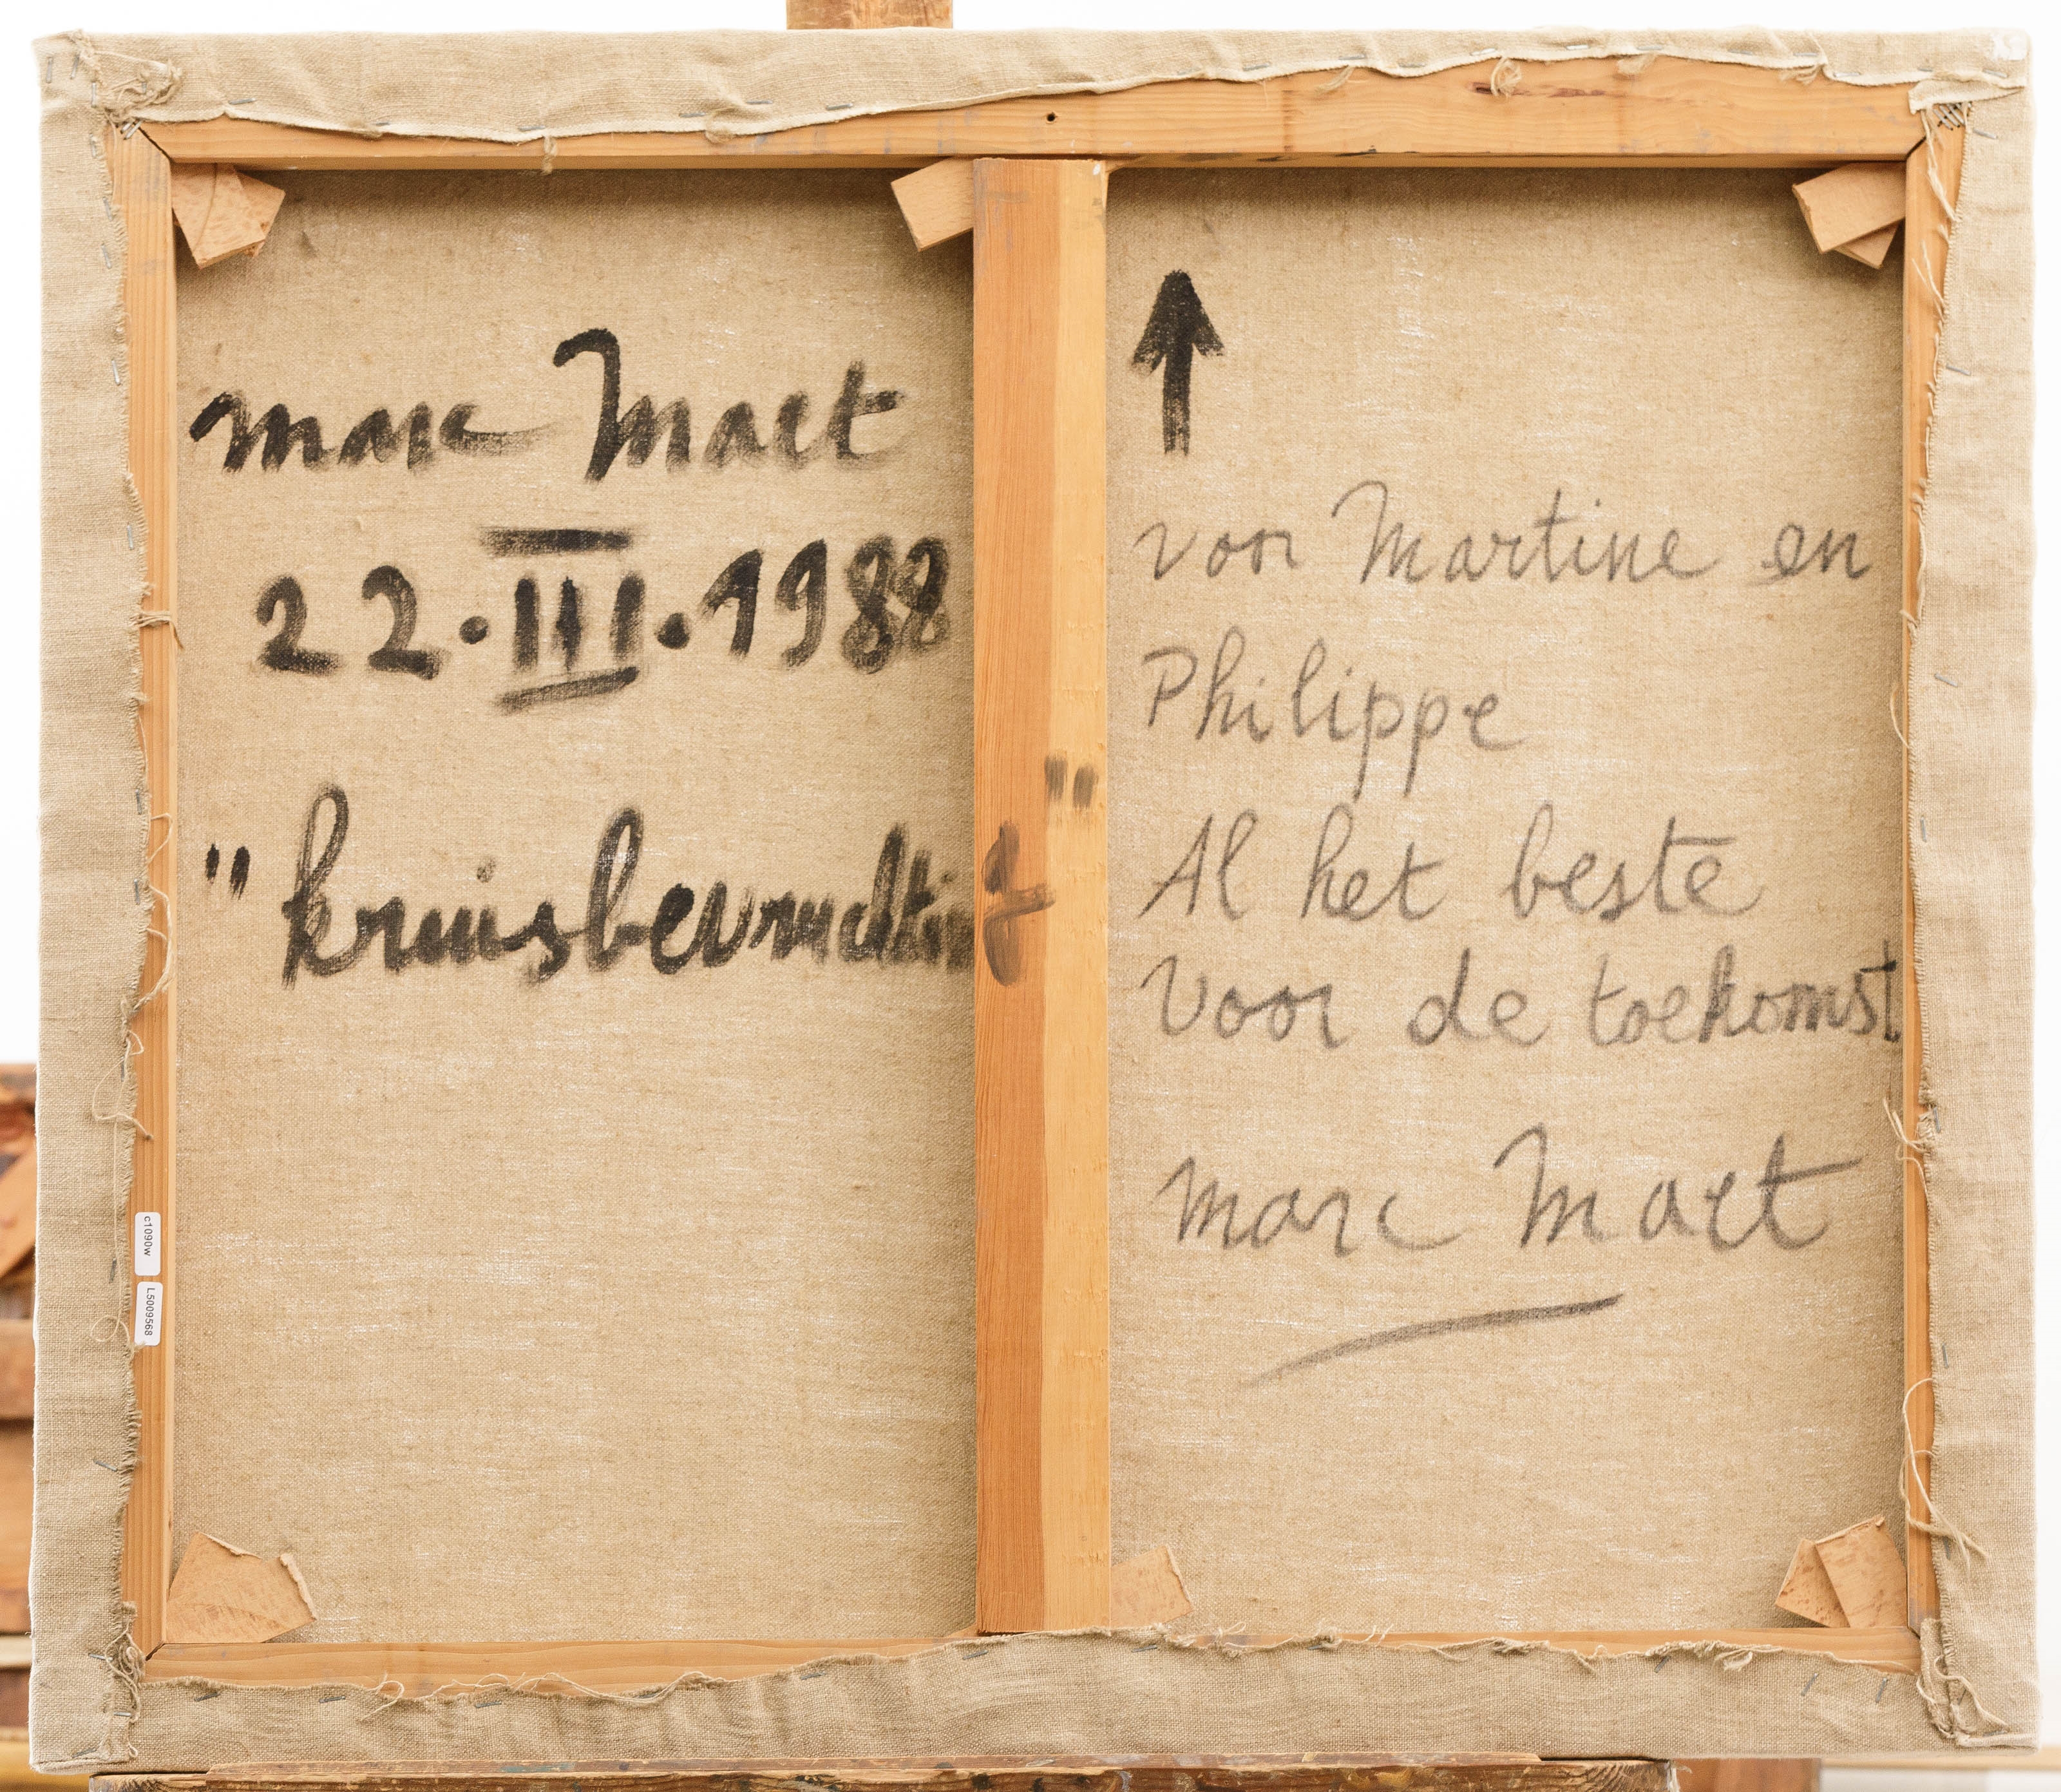 marc Maet
22.III.1988
"kruisbevruchting"
voor Martine en
Philippe
Al het beste
Voor de toekomst
marc Maet
c1090w
L5009568